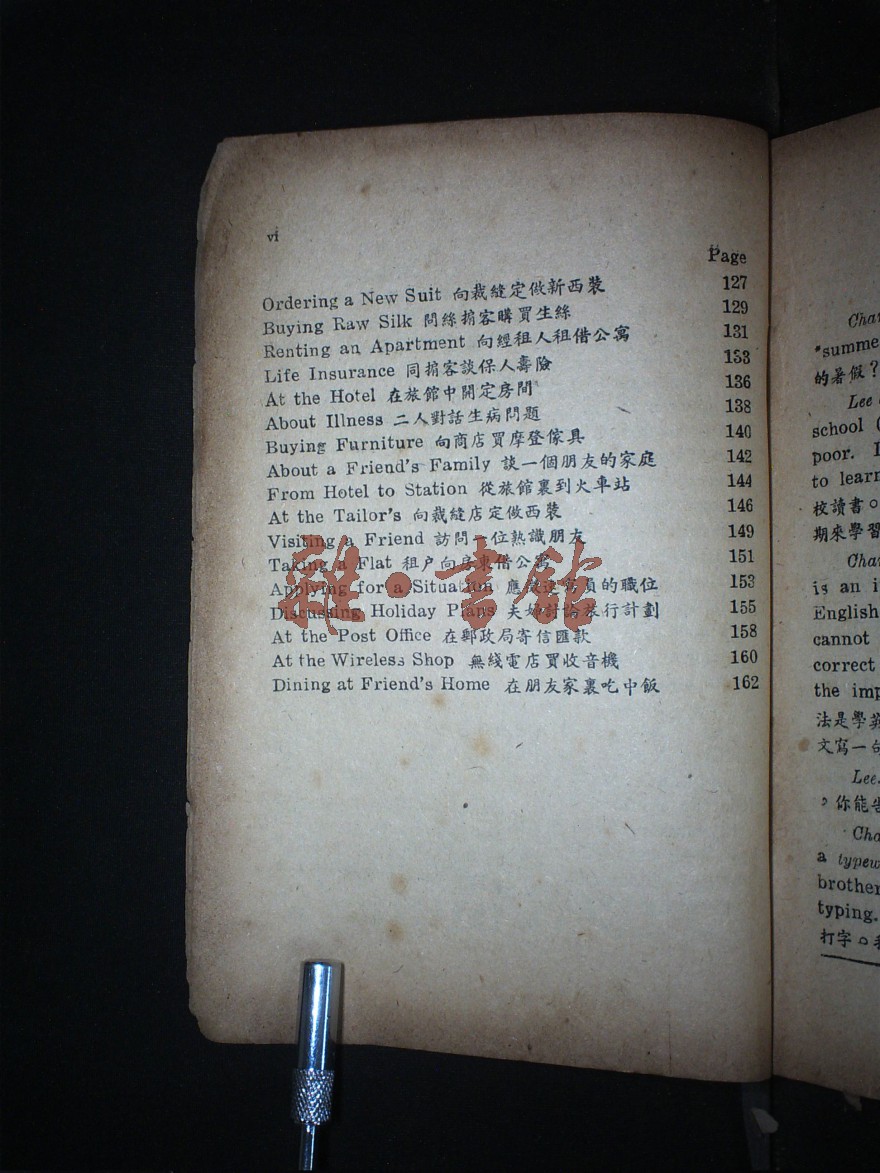 vi
Page
Ordering a New Suit 向裁縫定做新西裝 127
Buying Raw Silk 問絲掮客購買生絲 129
Renting an Apartment 向經租人租借公寓 131
Life Insurance 同掮客談保人壽險 133
At the Hotel 在旅館中開定房間 136
About Illness 二人對話生病問題 138
Buying Furniture 向商店買摩登傢具 140
About a Friend's Family 談一個朋友的家庭 142
From Hotel to Station 從旅館裏到火車站 144
At the Tailor's 向裁縫店定做西裝 146
Visiting a Friend 訪問一位熟識朋友 149
Taking a Flat 租户向房東借公寓 151
Applying for a Situation 應徵速寫員的職位 153
Discussing Holiday Plans 夫婦討論旅行計劃 155
At the Post Office 在郵政局寄信匯款 158
At the Wireless Shop 無綫電店買收音機 160
Dining at Friend's Home 在朋友家裏吃中飯 162
雜·書館
*summe
的暑假？
Lee
school
poor.
to lear
校讀書。
期來學習
is an i
English
cannot
correct
the imp
法是學英
文寫一句
Lee.
你能告
a typew
brother
typing.
打字。